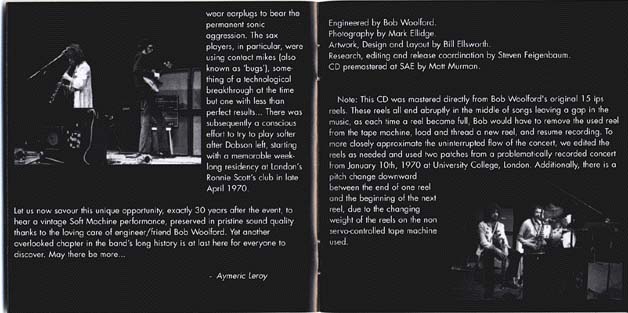 wear earplugs to bear the
permanent sonic
aggression. The sax
players, in particular, were
using contact mikes (also
known as 'bugs'), some-
thing of a technological
breakthrough at the time
but one with less than
perfect results... There was
subsequently a conscious
effort to try to play softer
after Dobson left, starting
with a memorable week-
long residency at London's
Ronnie Scott's club in late
April 1970.
Let us now savour this unique opportunity, exactly 30 years after the event, to
hear a vintage Soft Machine performance, preserved in pristine sound quality
thanks to the loving care of engineer/friend Bob Woolford. Yet another
overlooked chapter in the band's long history is at last here for everyone to
discover. May there be more...
- Aymeric Leroy
Engineered by Bob Woolford.
Photography by Mark Ellidge.
Artwork, Design and Layout by Bill Ellsworth.
Research, editing and release coordination by Steven Feigenbaum.
CD premastered at SAE by Matt Murman.
Note: This CD was mastered directly from Bob Woolford's original 15 ips
reels. These reels all end abruptly in the middle of songs leaving a gap in the
music, as each time a reel became full, Bob would have to remove the used reel
from the tape machine, load and thread a new reel, and resume recording. To
more closely approximate the uninterrupted flow of the concert, we edited the
reels as needed and used two patches from a problematically recorded concert
from January 10th, 1970 at University College, London. Additionally, there is a
pitch change downward
between the end of one reel
and the beginning of the next
reel, due to the changing
weight of the reels on the non
servo-controlled tape machine
used.